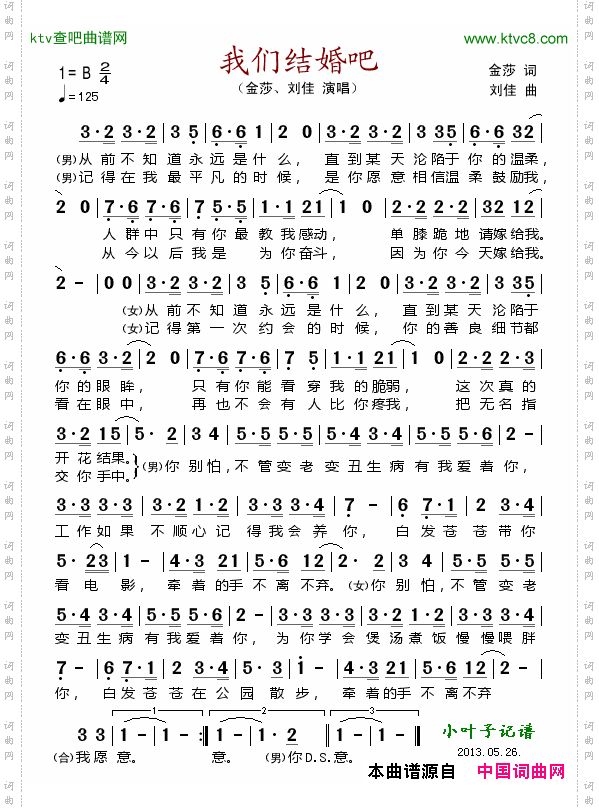 ktv查吧曲谱网
www.ktvc8.com
我们结婚吧
1= B 2/4
金莎 词
♩=125
(金莎、刘佳 演唱)
刘佳 曲
3·2 3·2 | 3 5 | 6·6 6·6 | 3·2 3·2 | 3 35 | 6·6 32 |
(男)从 前 不 知 道 永 远 是 什 么， 直 到 某 天 沦陷于 你 的 温柔，
(男)记 得 在 我 最 平 凡 的 时 候， 是 你 愿 意 相信温 柔 鼓励我，
2 0 | 7·6 7·6 | 75 5·5 | 1·1 21 | 1 0 | 2·2 2·2 | 32 12 |
人 群 中 只 有 你 最 教 我 感动， 单 膝 跪 地 请嫁 给我。
从 今 以 后 我 是 为 你 奋斗， 因 为 你 今 天嫁 给我。
2 - | 0 0 | 3·2 3·2 | 3 5 | 6·6 6·6 | 3·2 3·2 | 3 5 |
(女)从 前 不 知 道 永 远 是 什 么， 直 到 某 天 沦陷于
(女)记 得 第 一 次 约 会 的 时 候， 你 的 善 良 细节都
6·6 3·2 | 2 0 | 7·6 7·6 | 7 5 | 1·1 21 | 1 0 | 2·2 2·3 |
你 的 眼 眸， 只 有 你 能 看 穿 我 的 脆弱， 这 次 真 的
看 在 眼 中， 再 也 不 会 有 人 比 你 疼我， 把 无 名 指
3·2 15 | 5· 2 | 3 4 | 5·5 5·5 | 5·4 3·4 | 5·5 5·6 | 2 - |
开 花 结果。
(男)你 别 怕，不 管 变 老 变 丑 生 病 有 我 爱 着 你，
交 你 手中。
3·3 3·3 | 3·2 1·2 | 3·3 3·4 | 7 - | 6 7·1 | 3·3 3·4 |
工 作 如 果 不 顺 心 记 得 我 会 养 你， 白 发 苍 苍 带 你
5· 23 | 1 - | 4·3 21 | 5·6 12 | 2 3 4 | 5·5 5·5 |
看 电 影， 牵 着 的手 不 离 不弃。(女)你 别 怕，不 管 变 老
5·4 3·4 | 5·5 5·6 | 2 - | 3·3 3·3 | 3·2 1·2 | 3·3 3·4 |
变 丑 生 病 有 我 爱 着 你， 为 你 学 会 煲 汤 煮 饭 慢 慢 喂 胖
7 - | 6 7·1 | 3·3 3·4 | 5·3 | i - | 4·3 21 | 5·6 12 | 2 - |
你， 白 发 苍 苍 在 公 园 散 步， 牵 着 的手 不 离 不弃
1 2 3
3 3 | 1 - | 1 - :‖ 1 - | 1 - | 3·4 | 1 - | 1 - ‖
小叶子记谱
(合)我愿 意。 意。 (男)你D.S.意。
2013.05.26.
本曲谱源自 中国词曲网
词曲网
词曲网
词曲网
词曲网
词曲网
词曲网
词曲网
词曲网